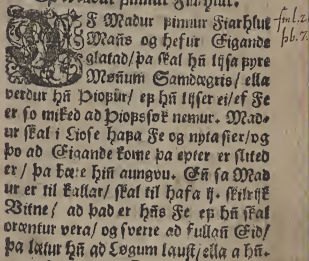 F Madur finnur Fiarhlut
Mañs og hefur Eigande
glatad/ þa skal hñ lijsa fyre
Møñum Samdægris/ ella
verdur hñ Þiofur/ ef hñ lijser ei/ ef Fe
er so miked ad Þiofssøk nemur. Mad-
ur skal i Liose hafa Fe og nyta sier/ og
þo ad Eigande kome þa epter er slited
er/ þa bæte hñ aungvu. Eñ sa Mad
ur er til kallar/ skal til hafa ij. skilrijk
Vitne/ ad þad er hñs Fe ef hñ skal
oræntur vera/ og sverie ad fullañ Eid/
þa lætur hñ ad Løgum laust/ ella a hñ.